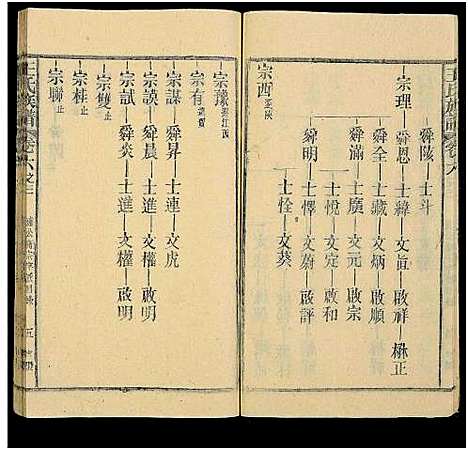 王氏族譜 卷六
舜陵 士斗
宗理 舜恩 士緯 文眞 啟祥 楙正
舜全 士藏 文炳 啟順
舜滿 士廣 文元 啟宗
士悅 文定 啟和
舜明 士懌 文蔚 啟評
士恮 文葵
宗酉
宗豫
宗有
宗謀 舜昇 士連 文虎
宗謨 舜晨 士進 文權 啟明
宗試 舜炎 士進 文權 啟明
宗雙 止
宗桂 止
宗聯 止
王氏族譜 卷六之三
五